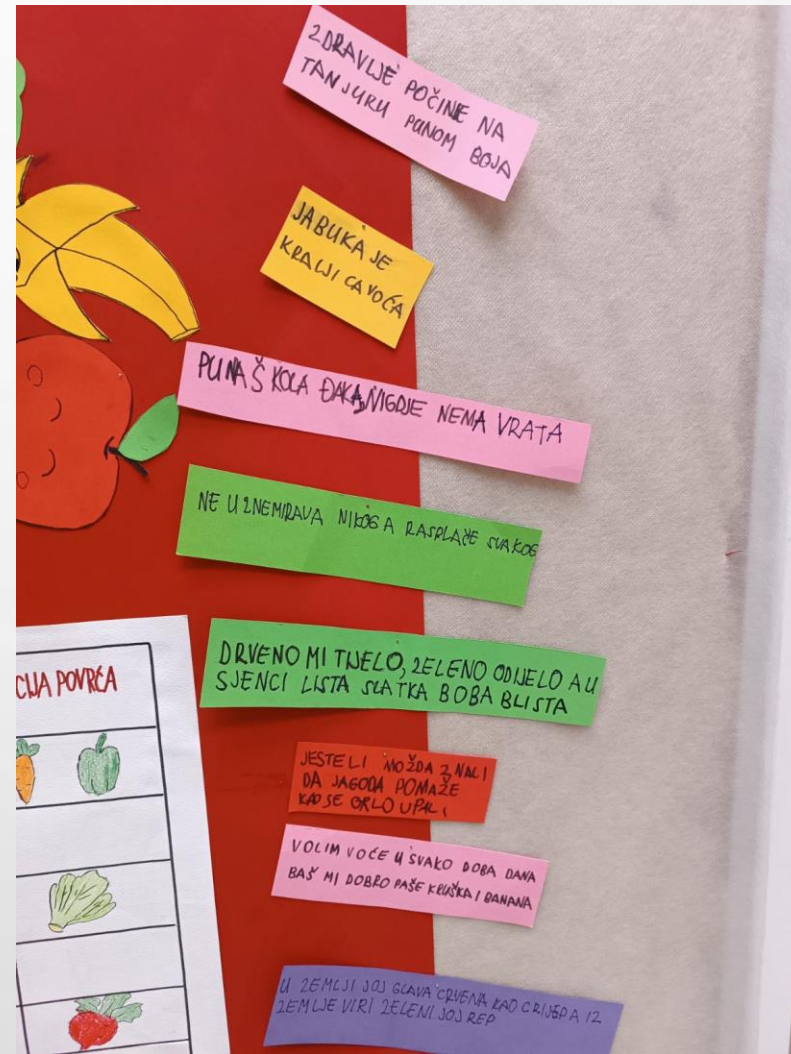 ZDRAVLJE POČINE NA
TANJURU PUNOM BOJA
JABUKA JE
KRALJICA VOĆA
PUNA ŠKOLA ĐAKA, NIGDJE NEMA VRATA
NE UZNEMIRAVA NIKOG A RASPLAČE SVAKOG
DRVENO MI TIJELO, ZELENO ODIJELO A U
SJENCI LISTA SLATKA BOBA BLISTA
CIJA POVRĆA
JESTE LI MOŽDA ZNALI
DA JAGODA POMAŽE
KAD SE GRLO UPALI
VOLIM VOĆE U SVAKO DOBA DANA
BAŠ MI DOBRO PAŠE KRUŠKA I BANANA
U ZEMLJI JOJ GLAVA CRVENA KAO CRIJEP A IZ
ZEMLJE VIRI ZELENI JOJ REP